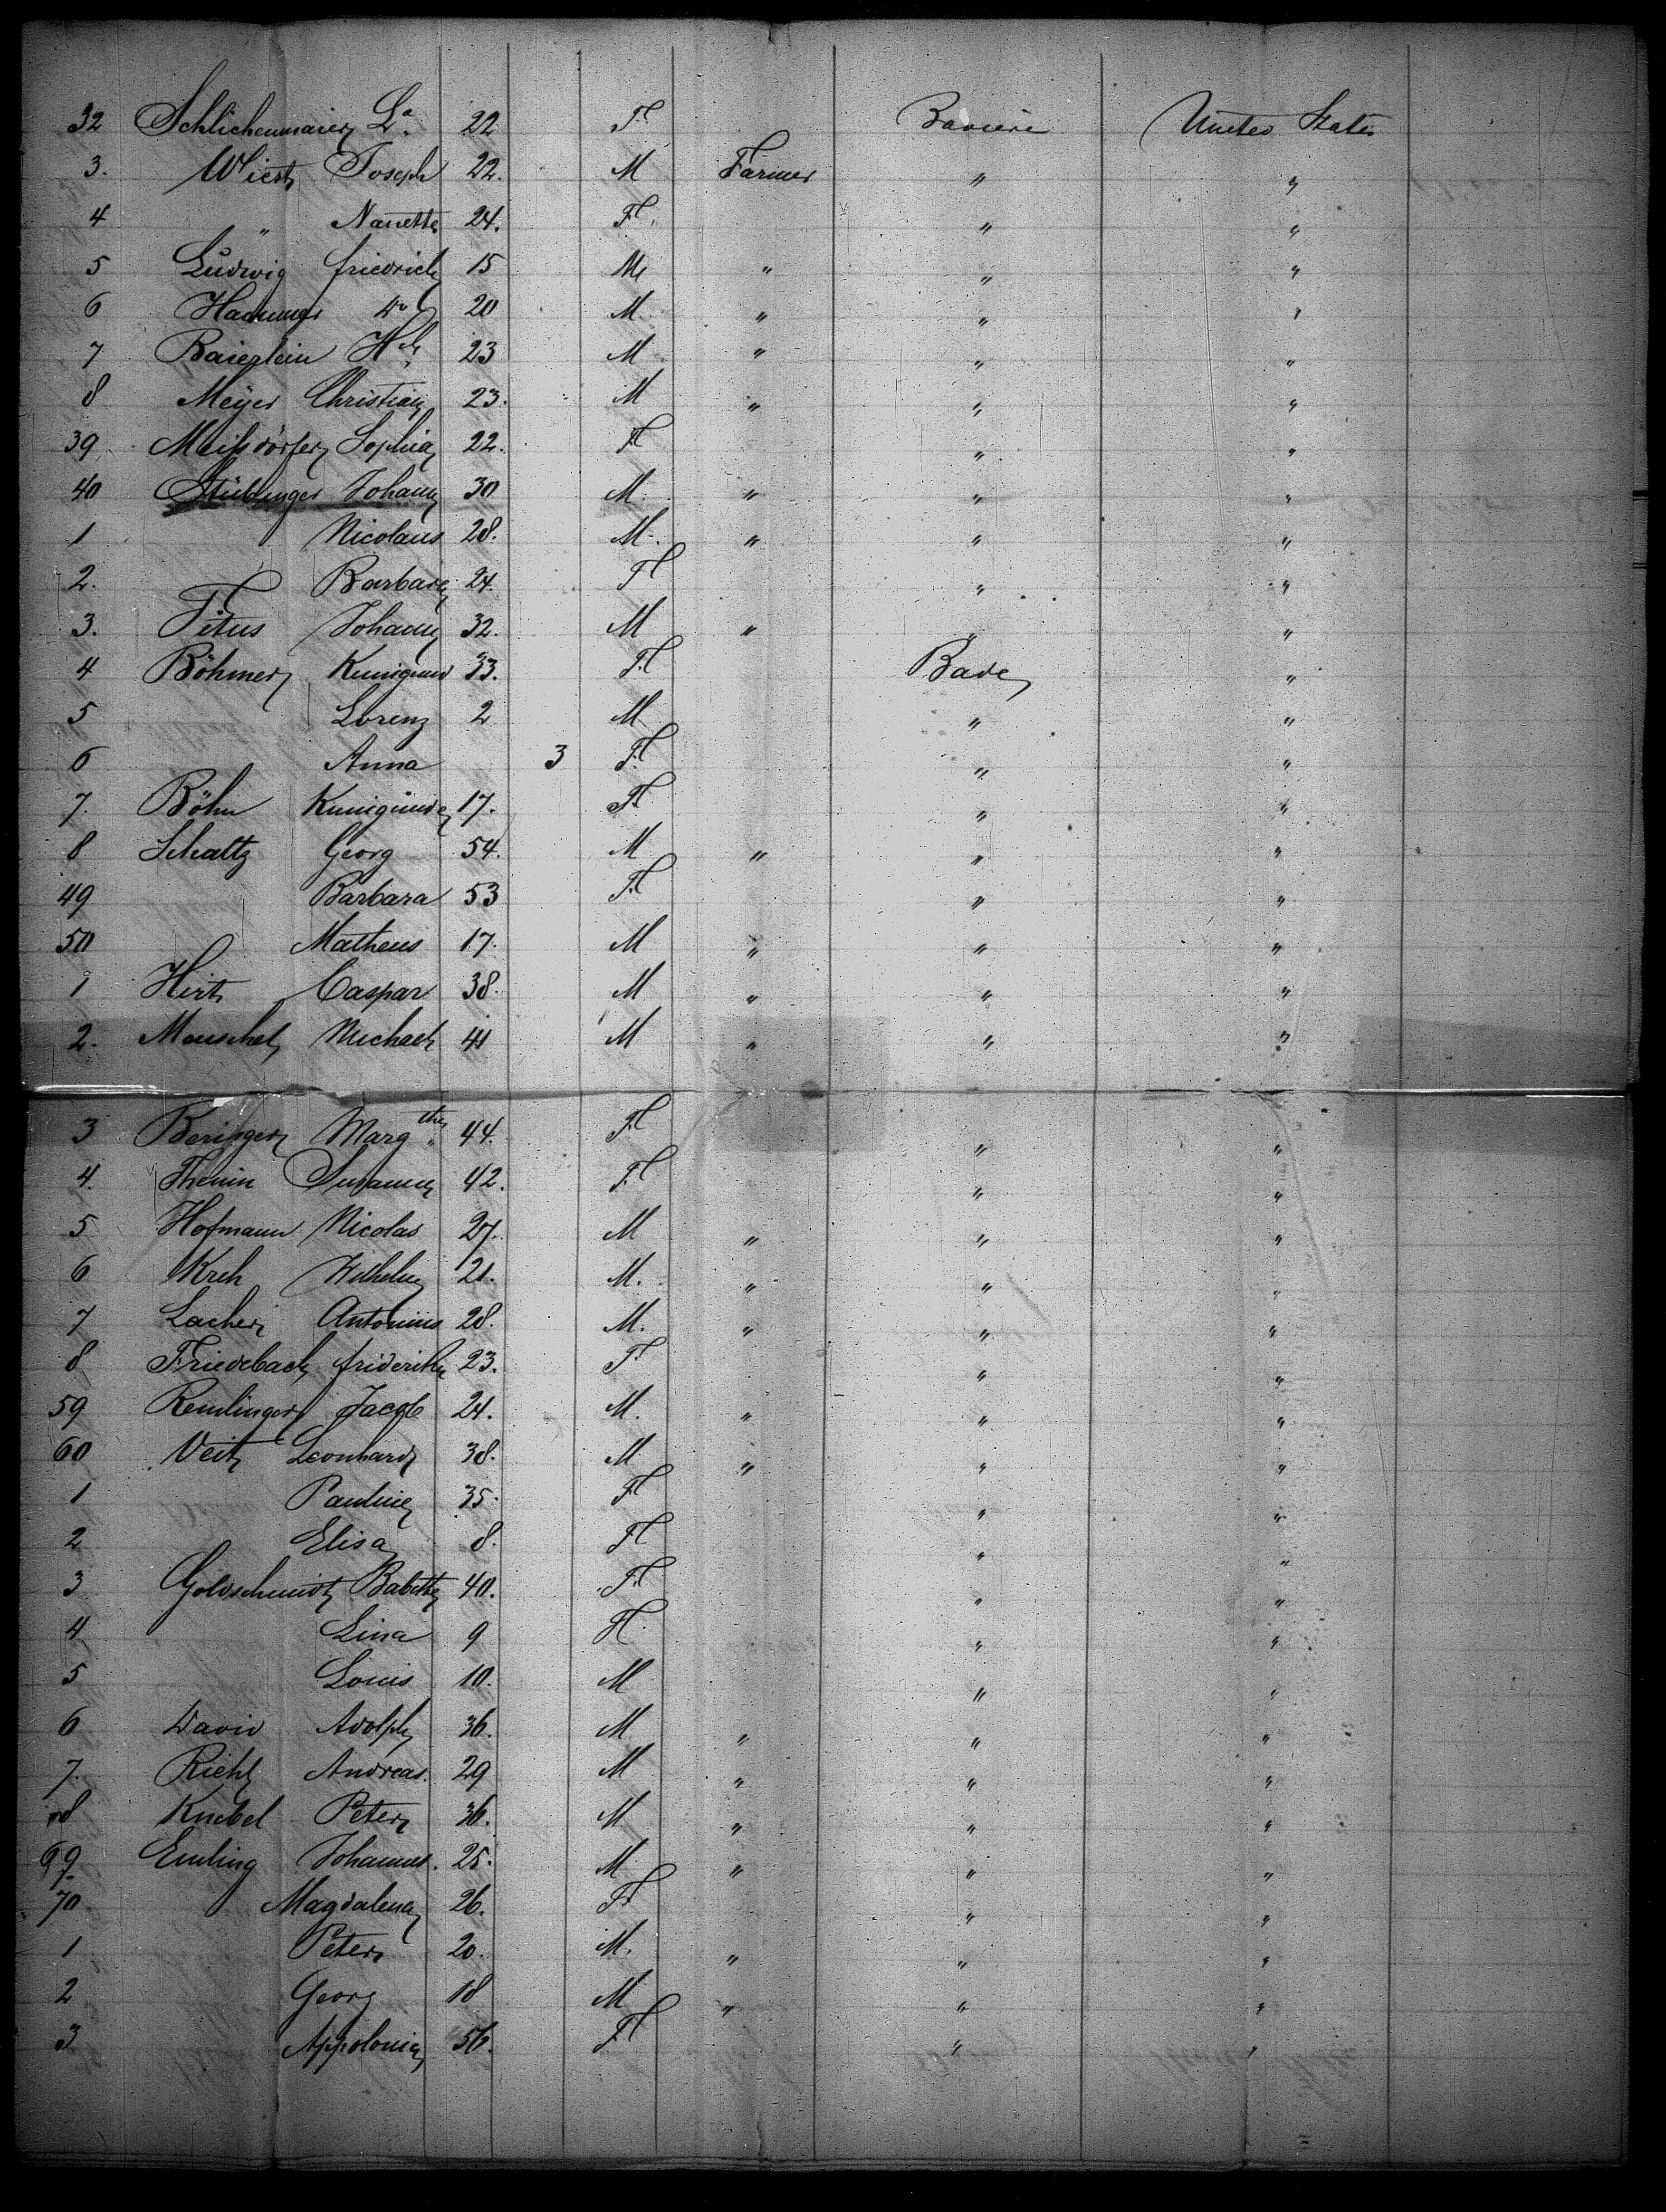 32 Schlichenmaier La 22 Fl Baviere United States
3. Wiest Joseph 22. M Farmer " "
4 " Nanette 24. Fl " "
5 Ludwig friedrich 15 M " " "
6 do 20 M " " "
7 Baierlein Hch 23 M " " "
8 Meyer Christian 23. M " " "
39 Meissdörfer Sophia 22. Fl " "
40 Stüblinger Johann 30 M " " "
1 Nicolaus 28. M. " " "
2. Barbara 24. Fl " "
3. Titus Johann 32. M " " "
4 Böhmer Kunigund 33. Fl Bade "
5 Lorenz 2 M " "
6 Anna 3 Fl " "
7. Böhm Kunigunde 17. Fl " "
8 Schaltz Georg 54. M " " "
49 Barbara 53 Fl " "
50 Matheus 17. M " " "
1 Hirt Caspar 38. M " " "
2. Meuschel Michael 41 M " " "
3 Beringer Margthe 44. Fl " "
4. Susanna 42. Fl " "
5 Hofmann Nicolas 27. M " " "
6 Kreh Wilhelm 21. M. " " "
7 Lacher Antonius 28. M. " " "
8 Friedebach friderike 23. Fl " "
59 Remlinger Jacob 24. M. " " "
60 Veit Leonhard 38. M " " "
1 Pauline 35. Fl " "
2 Elisa 8. Fl " "
3 Goldschmidt Babette 40. Fl " "
4 Lina 9 Fl " "
5 Louis 10. M " "
6 David Adolph 36. M " " "
7. Riehl Andreas. 29 M " " "
8 Knebel Peter 36. M " " "
69 Emling Johannes. 25. M " " "
70 Magdalena 26. Fl " "
1 Peter 20. M. " " "
2 Georg 18 M " " "
3 Appolonia 56. Fl " "